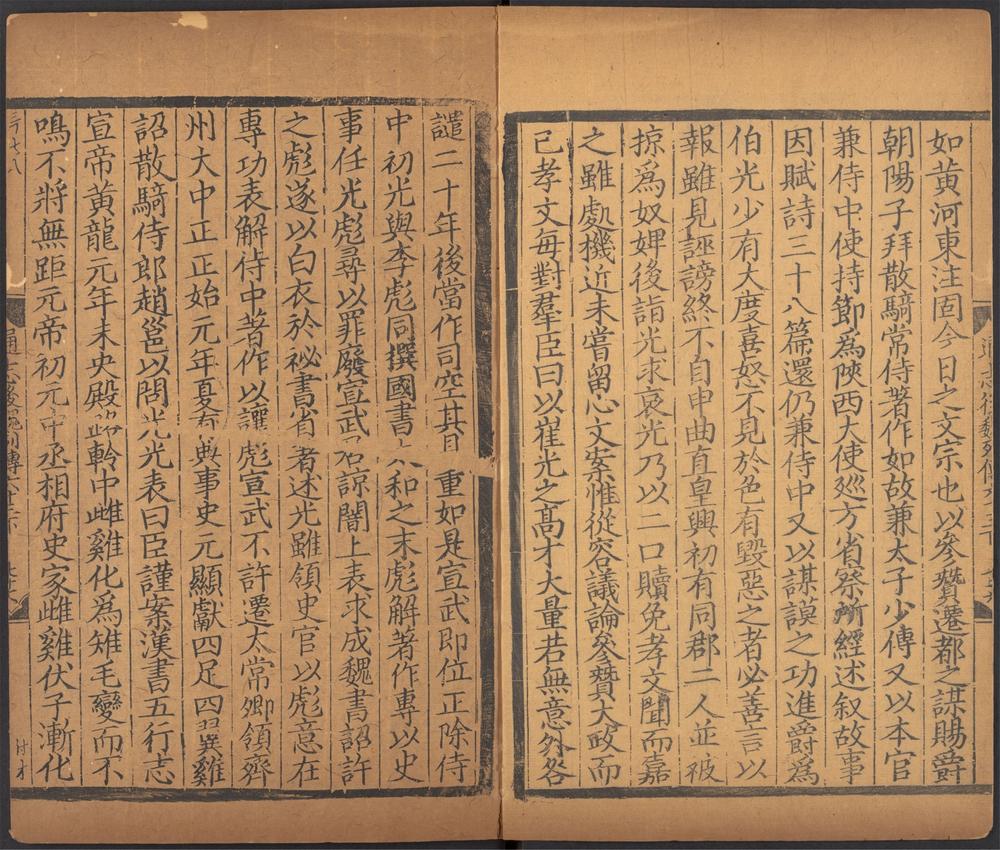 如黃河東注固今日之文宗也以參贊遷都之謀賜爵
朝陽子拜散騎常侍著作如故兼太子少傅又以本官
兼侍中使持節爲陝西大使廵方省察所經述叙故事
因賦詩三十八篇還仍兼侍中又以謀謨之功進爵爲
伯光少有大度喜怒不見於色有毀惡之者必善言以
報雖見誣謗終不自申曲直皇興初有同郡二人並被
掠爲奴婢後詣光求哀光乃以二口贖免孝文聞而嘉
之雖處機近未嘗留心文案惟從容議論參贊大政而
已孝文每對羣臣曰以崔光之高才大量若無意外咎
譴二十年後當作司空其見重如是宣武即位正除侍
中初光與李彪同撰國書太和之末彪解著作專以史
事任光彪尋以罪廢宣武居諒闇上表求成魏書詔許
之彪遂以白衣於祕書省著述光雖領史官以彪意在
專功表解侍中著作以讓彪宣武不許遷太常卿領齊
州大中正正始元年夏有典事史元顯獻四足四翼雞
詔散騎侍郎趙邕以問光光表曰臣謹案漢書五行志
宣帝黃龍元年未央殿路軨中雌雞化為雉毛變而不
鳴不將無距元帝初元中丞相府史家雌雞伏子漸化